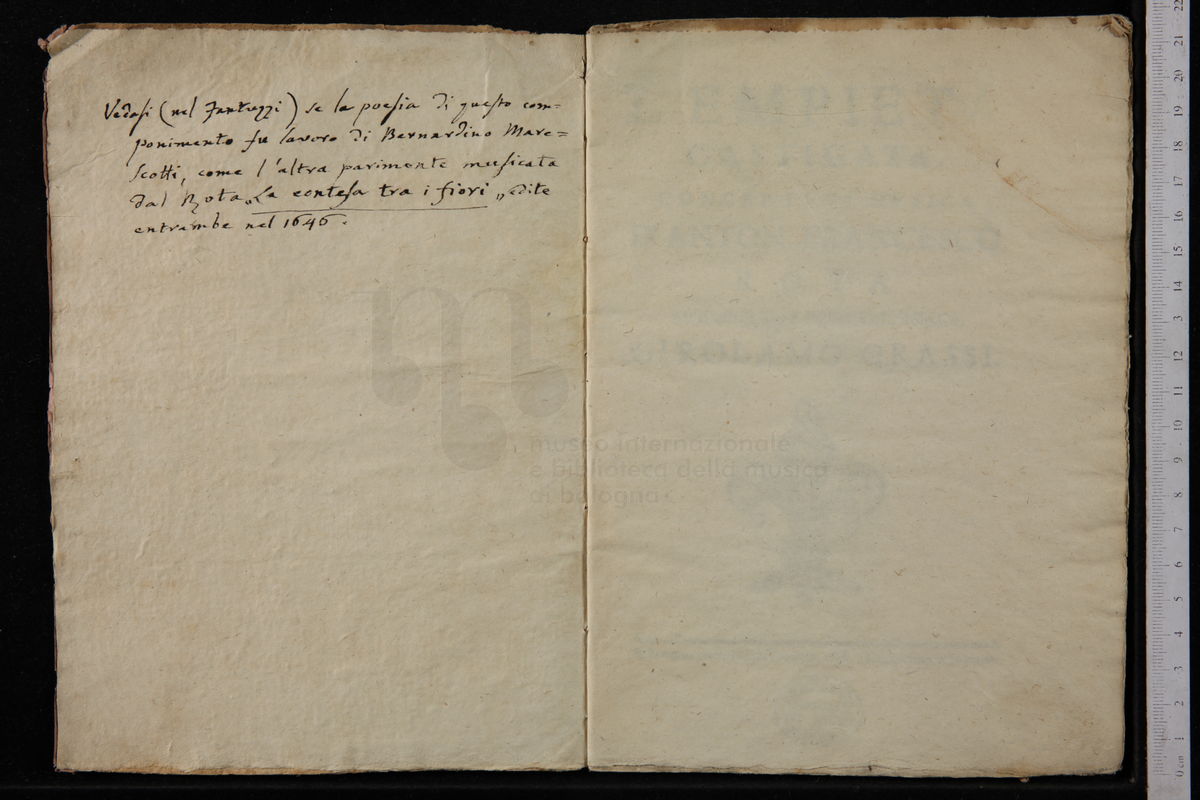 Vedasi (nel Fantuzzi) se la poesia di questo com=
ponimento fu lavoro di Bernardino Mare=
scotti, come l'altra parimente musicata
dal Rota „La contesa tra i fiori„ edite
entrambe nel 1646.
museo internazionale
e biblioteca della musica
di bologna
0 cm 1 2 3 4 5 6 7 8 9 10 11 12 3 14 15 16 17 18 19 20 21 22